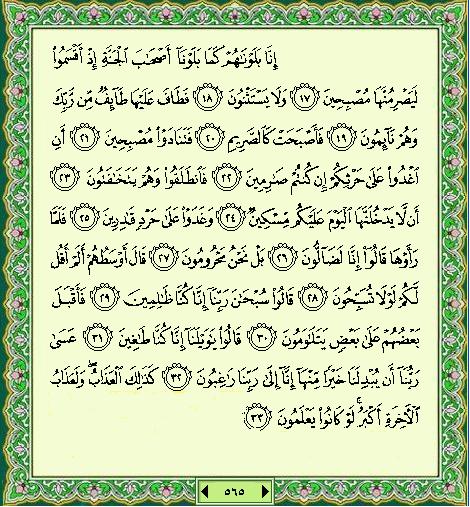 إِنَّا بَلَوْنَٰهُمْ كَمَا بَلَوْنَآ أَصْحَٰبَ ٱلْجَنَّةِ إِذْ أَقْسَمُوا۟
لَيَصْرِمُنَّهَا مُصْبِحِينَ ١٧ وَلَا يَسْتَثْنُونَ ١٨ فَطَافَ عَلَيْهَا طَآئِفٌ مِّن رَّبِّكَ
وَهُمْ نَآئِمُونَ ١٩ فَأَصْبَحَتْ كَٱلصَّرِيمِ ٢٠ فَتَنَادَوْا۟ مُصْبِحِينَ ٢١ أَنِ
ٱغْدُوا۟ عَلَىٰ حَرْثِكُمْ إِن كُنتُمْ صَٰرِمِينَ ٢٢ فَٱنطَلَقُوا۟ وَهُمْ يَتَخَٰفَتُونَ ٢٣
أَن لَّا يَدْخُلَنَّهَا ٱلْيَوْمَ عَلَيْكُم مِّسْكِينٌ ٢٤ وَغَدَوْا۟ عَلَىٰ حَرْدٍ قَٰدِرِينَ ٢٥ فَلَمَّا
رَأَوْهَا قَالُوٓا۟ إِنَّا لَضَآلُّونَ ٢٦ بَلْ نَحْنُ مَحْرُومُونَ ٢٧ قَالَ أَوْسَطُهُمْ أَلَمْ أَقُل
لَّكُمْ لَوْلَا تُسَبِّحُونَ ٢٨ قَالُوا۟ سُبْحَٰنَ رَبِّنَآ إِنَّا كُنَّا ظَٰلِمِينَ ٢٩ فَأَقْبَلَ
بَعْضُهُمْ عَلَىٰ بَعْضٍ يَتَلَٰوَمُونَ ٣٠ قَالُوا۟ يَٰوَيْلَنَآ إِنَّا كُنَّا طَٰغِينَ ٣١ عَسَىٰ
رَبُّنَآ أَن يُبْدِلَنَا خَيْرًا مِّنْهَآ إِنَّآ إِلَىٰ رَبِّنَا رَٰغِبُونَ ٣٢ كَذَٰلِكَ ٱلْعَذَابُ ۖ وَلَعَذَابُ
ٱلْءَاخِرَةِ أَكْبَرُ ۚ لَوْ كَانُوا۟ يَعْلَمُونَ ٣٣
٥٦٥